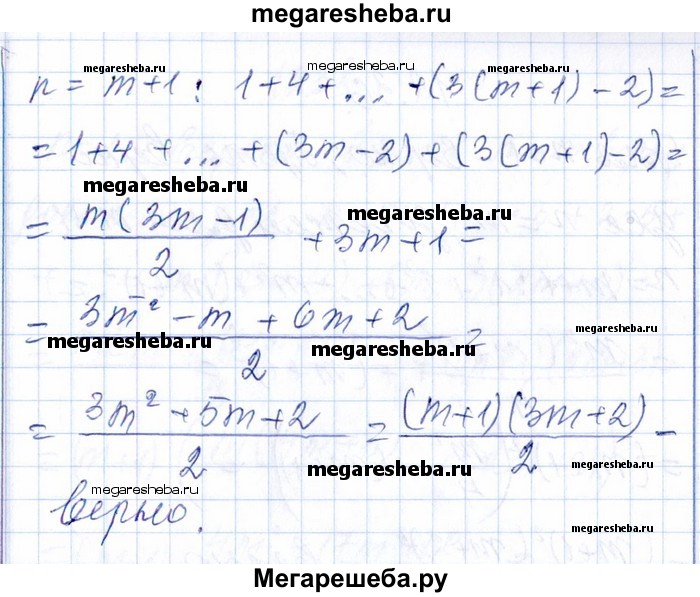 megaresheba.ru
n = m+1 : 1+4+...+(3(m+1)-2)=
=1+4+...+(3m-2)+(3(m+1)-2)=
= m(3m-1)/2 + 3m+1 =
= 3m²-m+6m+2/2 =
= 3m²+5m+2/2 = (m+1)(3m+2)/2 -
верно.
megaresheba.ru
megaresheba.ru
megaresheba.ru
megaresheba.ru
megaresheba.ru
megaresheba.ru
megaresheba.ru
megaresheba.ru
megaresheba.ru
megaresheba.ru
megaresheba.ru
megaresheba.ru
Мегарешеба.ру